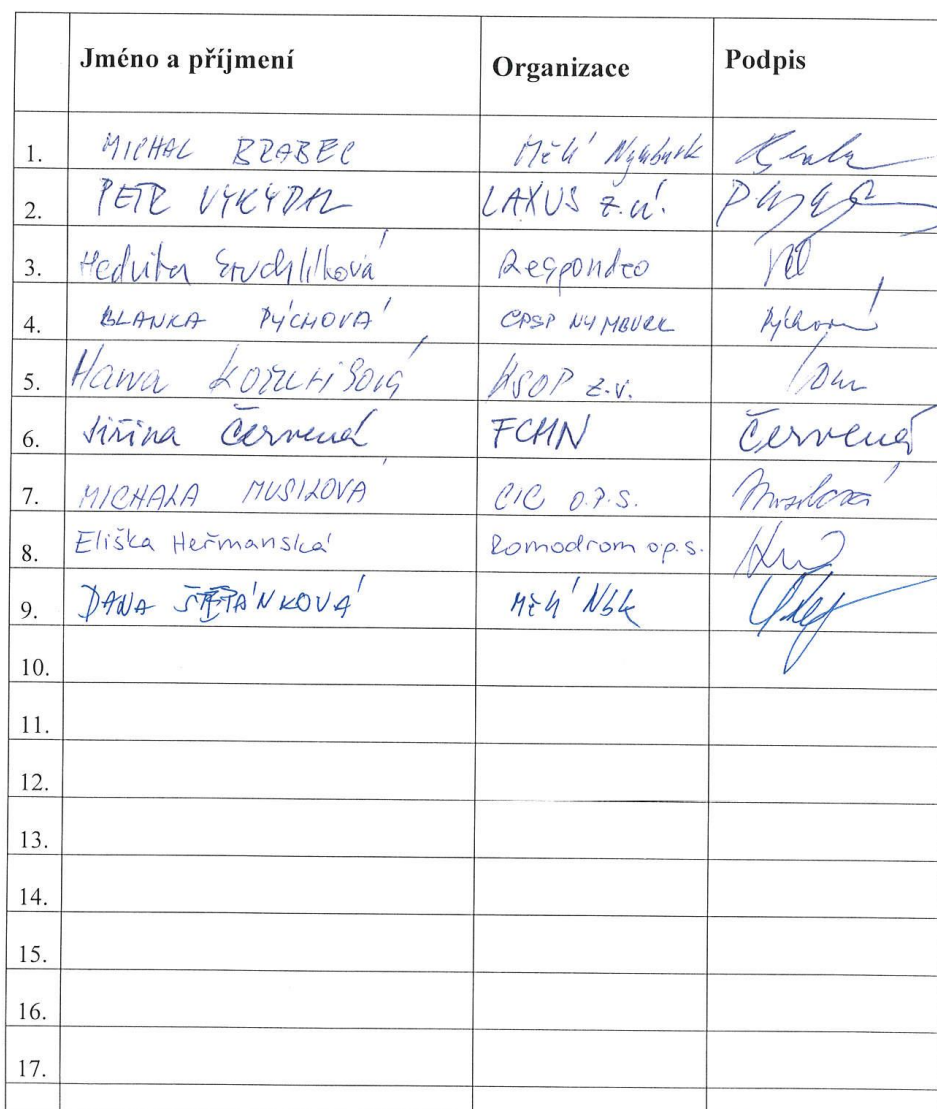 Jméno a příjmení Organizace Podpis
1. MICHAL BRABEC MěÚ Nymburk
2. PETR VYKÝDAL LAXUS z.ú.
3. Hedvika Respondeo
4. BLANKA PÝCHOVÁ CPSP NYMBURK Pýchová
5. Hana KSOP z.ú.
6. Jiřina Červená FCHN Červená
7. MICHALA MUSILOVÁ CIC O.P.S. Musilová
8. Eliška Heřmanská Romodrom o.p.s.
9. DANA ŠTĚPÁNKOVÁ MěÚ Nbk
10.
11.
12.
13.
14.
15.
16.
17.